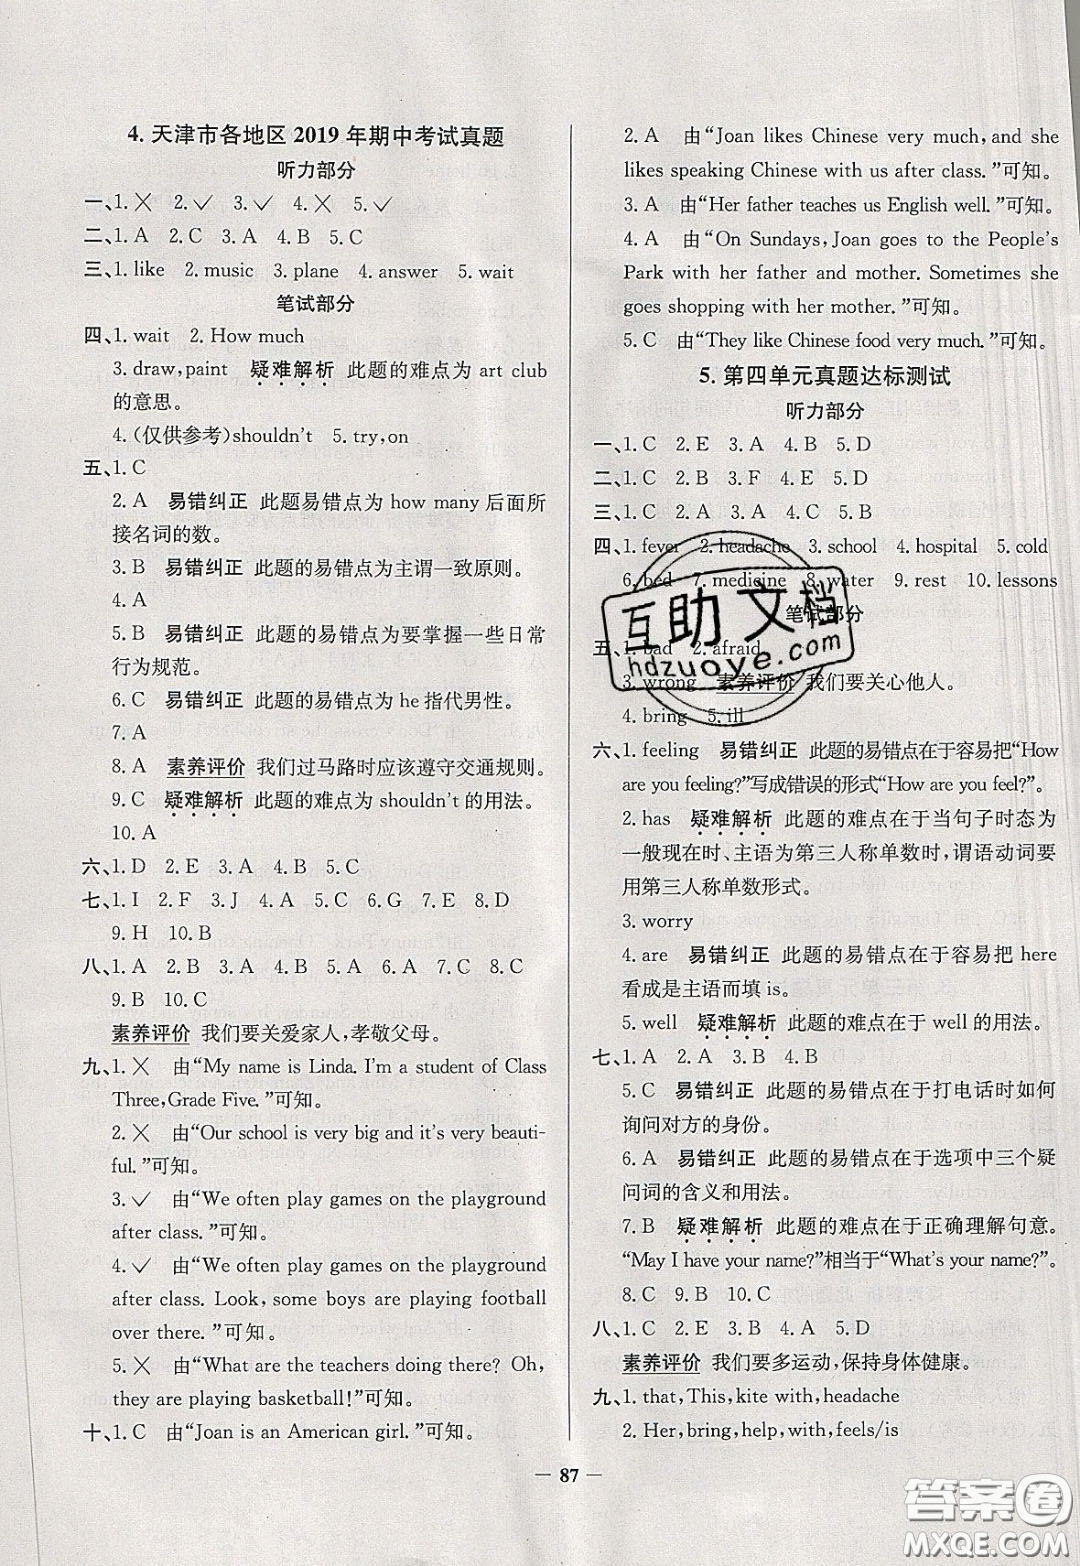 4. 天津市各地区 2019 年期中考试真题
听力部分
一、1. ✕ 2. ✓ 3. ✓ 4. ✕ 5. ✓
二、1. A 2. C 3. A 4. B 5. C
三、1. like 2. music 3. plane 4. answer 5. wait
笔试部分
四、1. wait 2. How much
3. draw, paint 疑难解析 此题的难点为 art club
的意思。
4. (仅供参考) shouldn't 5. try, on
五、1. C
2. A 易错纠正 此题易错点为 how many 后面所
接名词的数。
3. B 易错纠正 此题的易错点为主谓一致原则。
4. A
5. B 易错纠正 此题的易错点为要掌握一些日常
行为规范。
6. C 易错纠正 此题的易错点为 he 指代男性。
7. A
8. A 素养评价 我们过马路时应该遵守交通规则。
9. C 疑难解析 此题的难点为 shouldn't 的用法。
10. A
六、1. D 2. E 3. A 4. B 5. C
七、1. I 2. F 3. J 4. A 5. C 6. G 7. E 8. D
9. H 10. B
八、1. A 2. B 3. C 4. B 5. C 6. A 7. B 8. C
9. B 10. C
素养评价 我们要关爱家人，孝敬父母。
九、1. ✕ 由“My name is Linda. I'm a student of Class
Three, Grade Five. ”可知。
2. ✕ 由“Our school is very big and it's very beauti-
ful. ”可知。
3. ✓ 由“We often play games on the playground
after class. ”可知。
4. ✓ 由“We often play games on the playground
after class. Look, some boys are playing football
over there. ”可知。
5. ✕ 由“What are the teachers doing there? Oh,
they are playing basketball!”可知。
十、1. C 由“Joan is an American girl. ”可知。
2. A 由“Joan likes Chinese very much, and she
likes speaking Chinese with us after class. ”可知。
3. A 由“Her father teaches us English well. ”可知。
4. A 由“On Sundays, Joan goes to the People's
Park with her father and mother. Sometimes she
goes shopping with her mother. ”可知。
5. C 由“They like Chinese food very much. ”可知。
5. 第四单元真题达标测试
听力部分
一、1. C 2. E 3. A 4. B 5. D
二、1. C 2. B 3. F 4. E 5. D
三、1. C 2. A 3. A 4. C 5. B
四、1. fever 2. headache 3. school 4. hospital 5. cold
6. bed 7. medicine 8. water 9. rest 10. lessons
笔试部分
五、1. bad 2. afraid
3. wrong 素养评价 我们要关心他人。
4. bring 5. ill
六、1. feeling 易错纠正 此题的易错点在于容易把“How
are you feeling?”写成错误的形式“How are you feel?”。
2. has 疑难解析 此题的难点在于当句子时态为
一般现在时、主语为第三人称单数时，谓语动词要
用第三人称单数形式。
3. worry
4. are 易错纠正 此题的易错点在于容易把 here
看成是主语而填 is。
5. well 疑难解析 此题的难点在于 well 的用法。
七、1. A 2. A 3. B 4. B
5. C 易错纠正 此题的易错点在于打电话时如何
询问对方的身份。
6. A 易错纠正 此题的易错点在于选项中三个疑
问词的含义和用法。
7. B 疑难解析 此题的难点在于正确理解句意。
“May I have your name?”相当于“What's your name?”。
8. C 9. B 10. B
八、1. C 2. B 3. B 4. A 5. D
素养评价 我们要多运动，保持身体健康。
九、1. that, This, kite with, headache
2. Her, bring, help, with, feels/is
— 87 —
互助文档
hdzuoye.com
答案圈
MXQE.COM